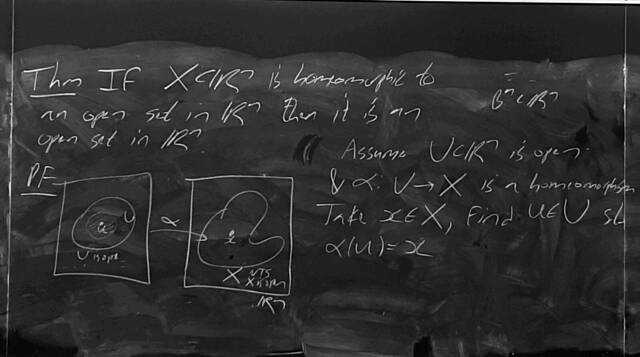 Thm IF X⊂ℝⁿ is homeomorphic to
an open set in ℝⁿ then it is an
open set in ℝⁿ.
Bⁿ⊂ℝⁿ
PF
Assume U⊂ℝⁿ is open
& α: U → X is a homeomorphism
Take x∈X, Find u∈U st
α(u)=x
U
u
U is open
α
x
X WTS
X is open
ℝⁿ